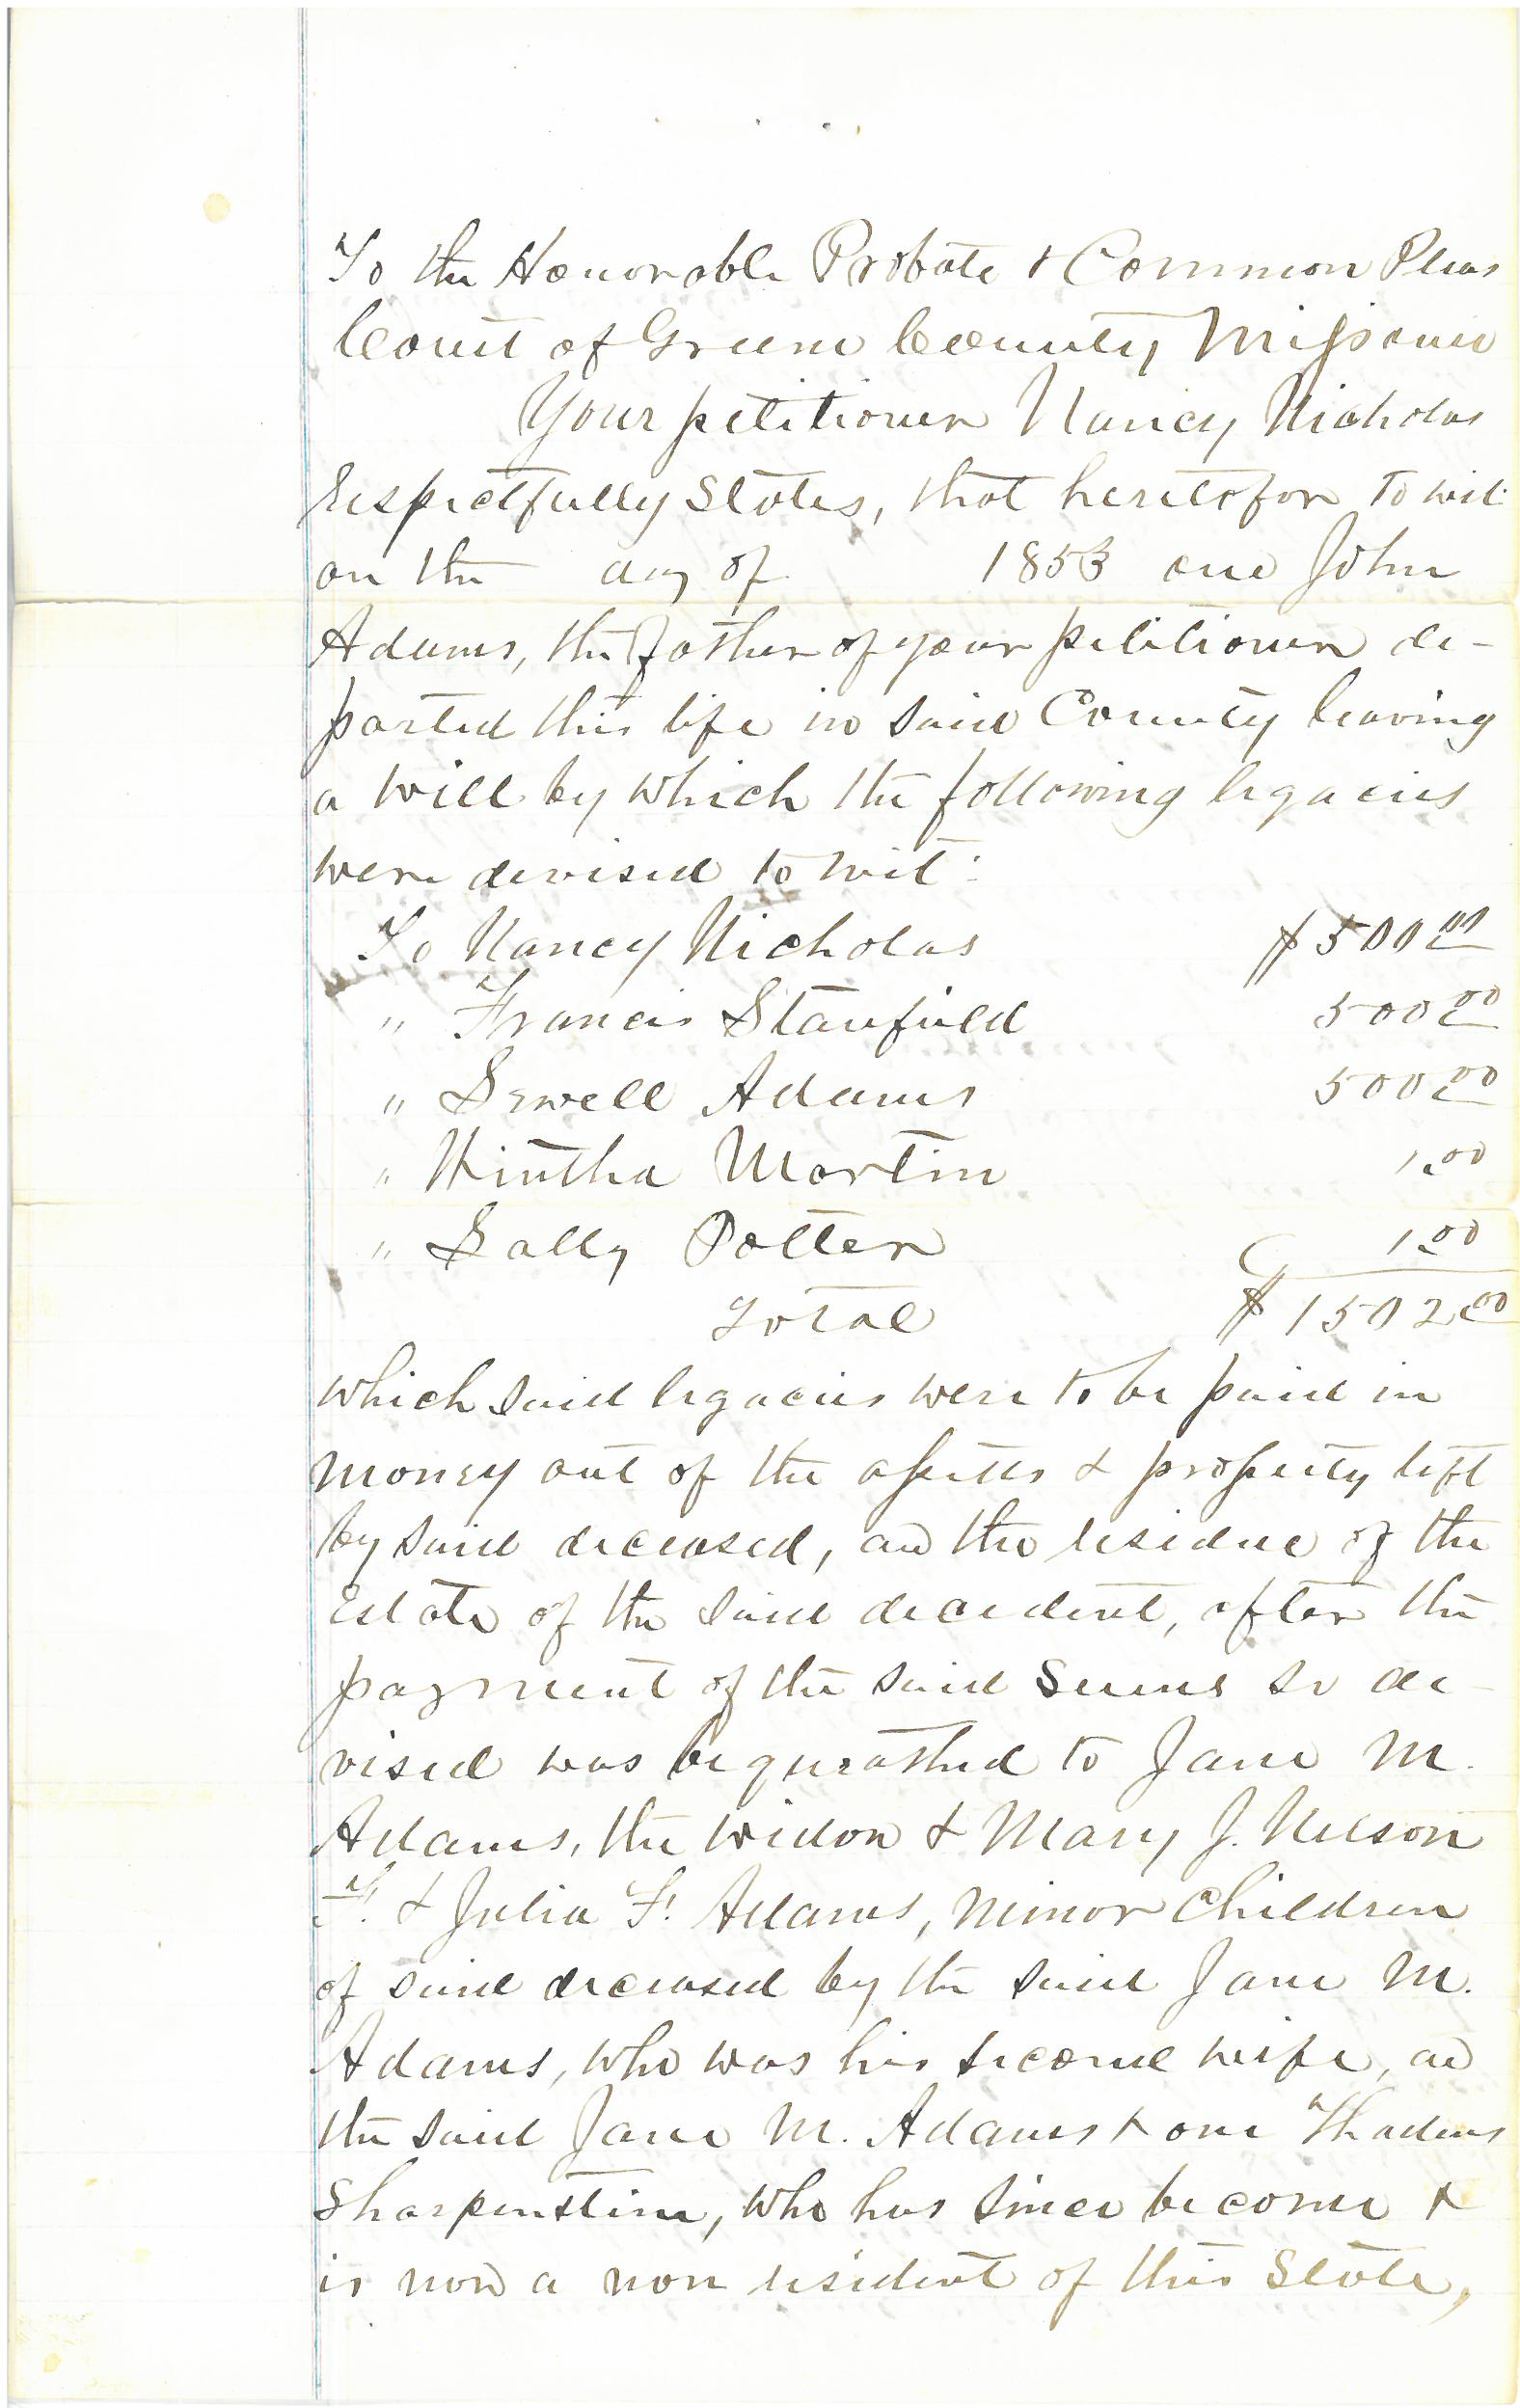 To the Honorable Probate & Common Pleas
Court of Greene County Missouri
Your petitioner Nancy Nicholas
respectfully states, that heretofore to wit:
on the day of 1853 one John
Adams, the father of your petitioner de-
parted this life in said County leaving
a will by which the following legacies
were devised to wit:
To Nancy Nicholas $500.00
" Francis Stanfield 500.00
" Sewell Adams 500.00
" Martin 1.00
" Sally Potter 1.00
Total $1502.00
which said legacies were to be paid in
money out of the assetts & property left
by said deceased, and the residue of the
Estate of the said decedent, after the
payment of the said sums so de-
vised was bequeathed to Jane M.
Adams, the widow & Mary J. Nelson
T. & Julia F. Adams, minor children
of said deceased by the said Jane M.
Adams, who was his second wife, and
the said Jane M. Adams & one Thadeus
Sharpenstine, who has since become &
is now a non resident of this State,